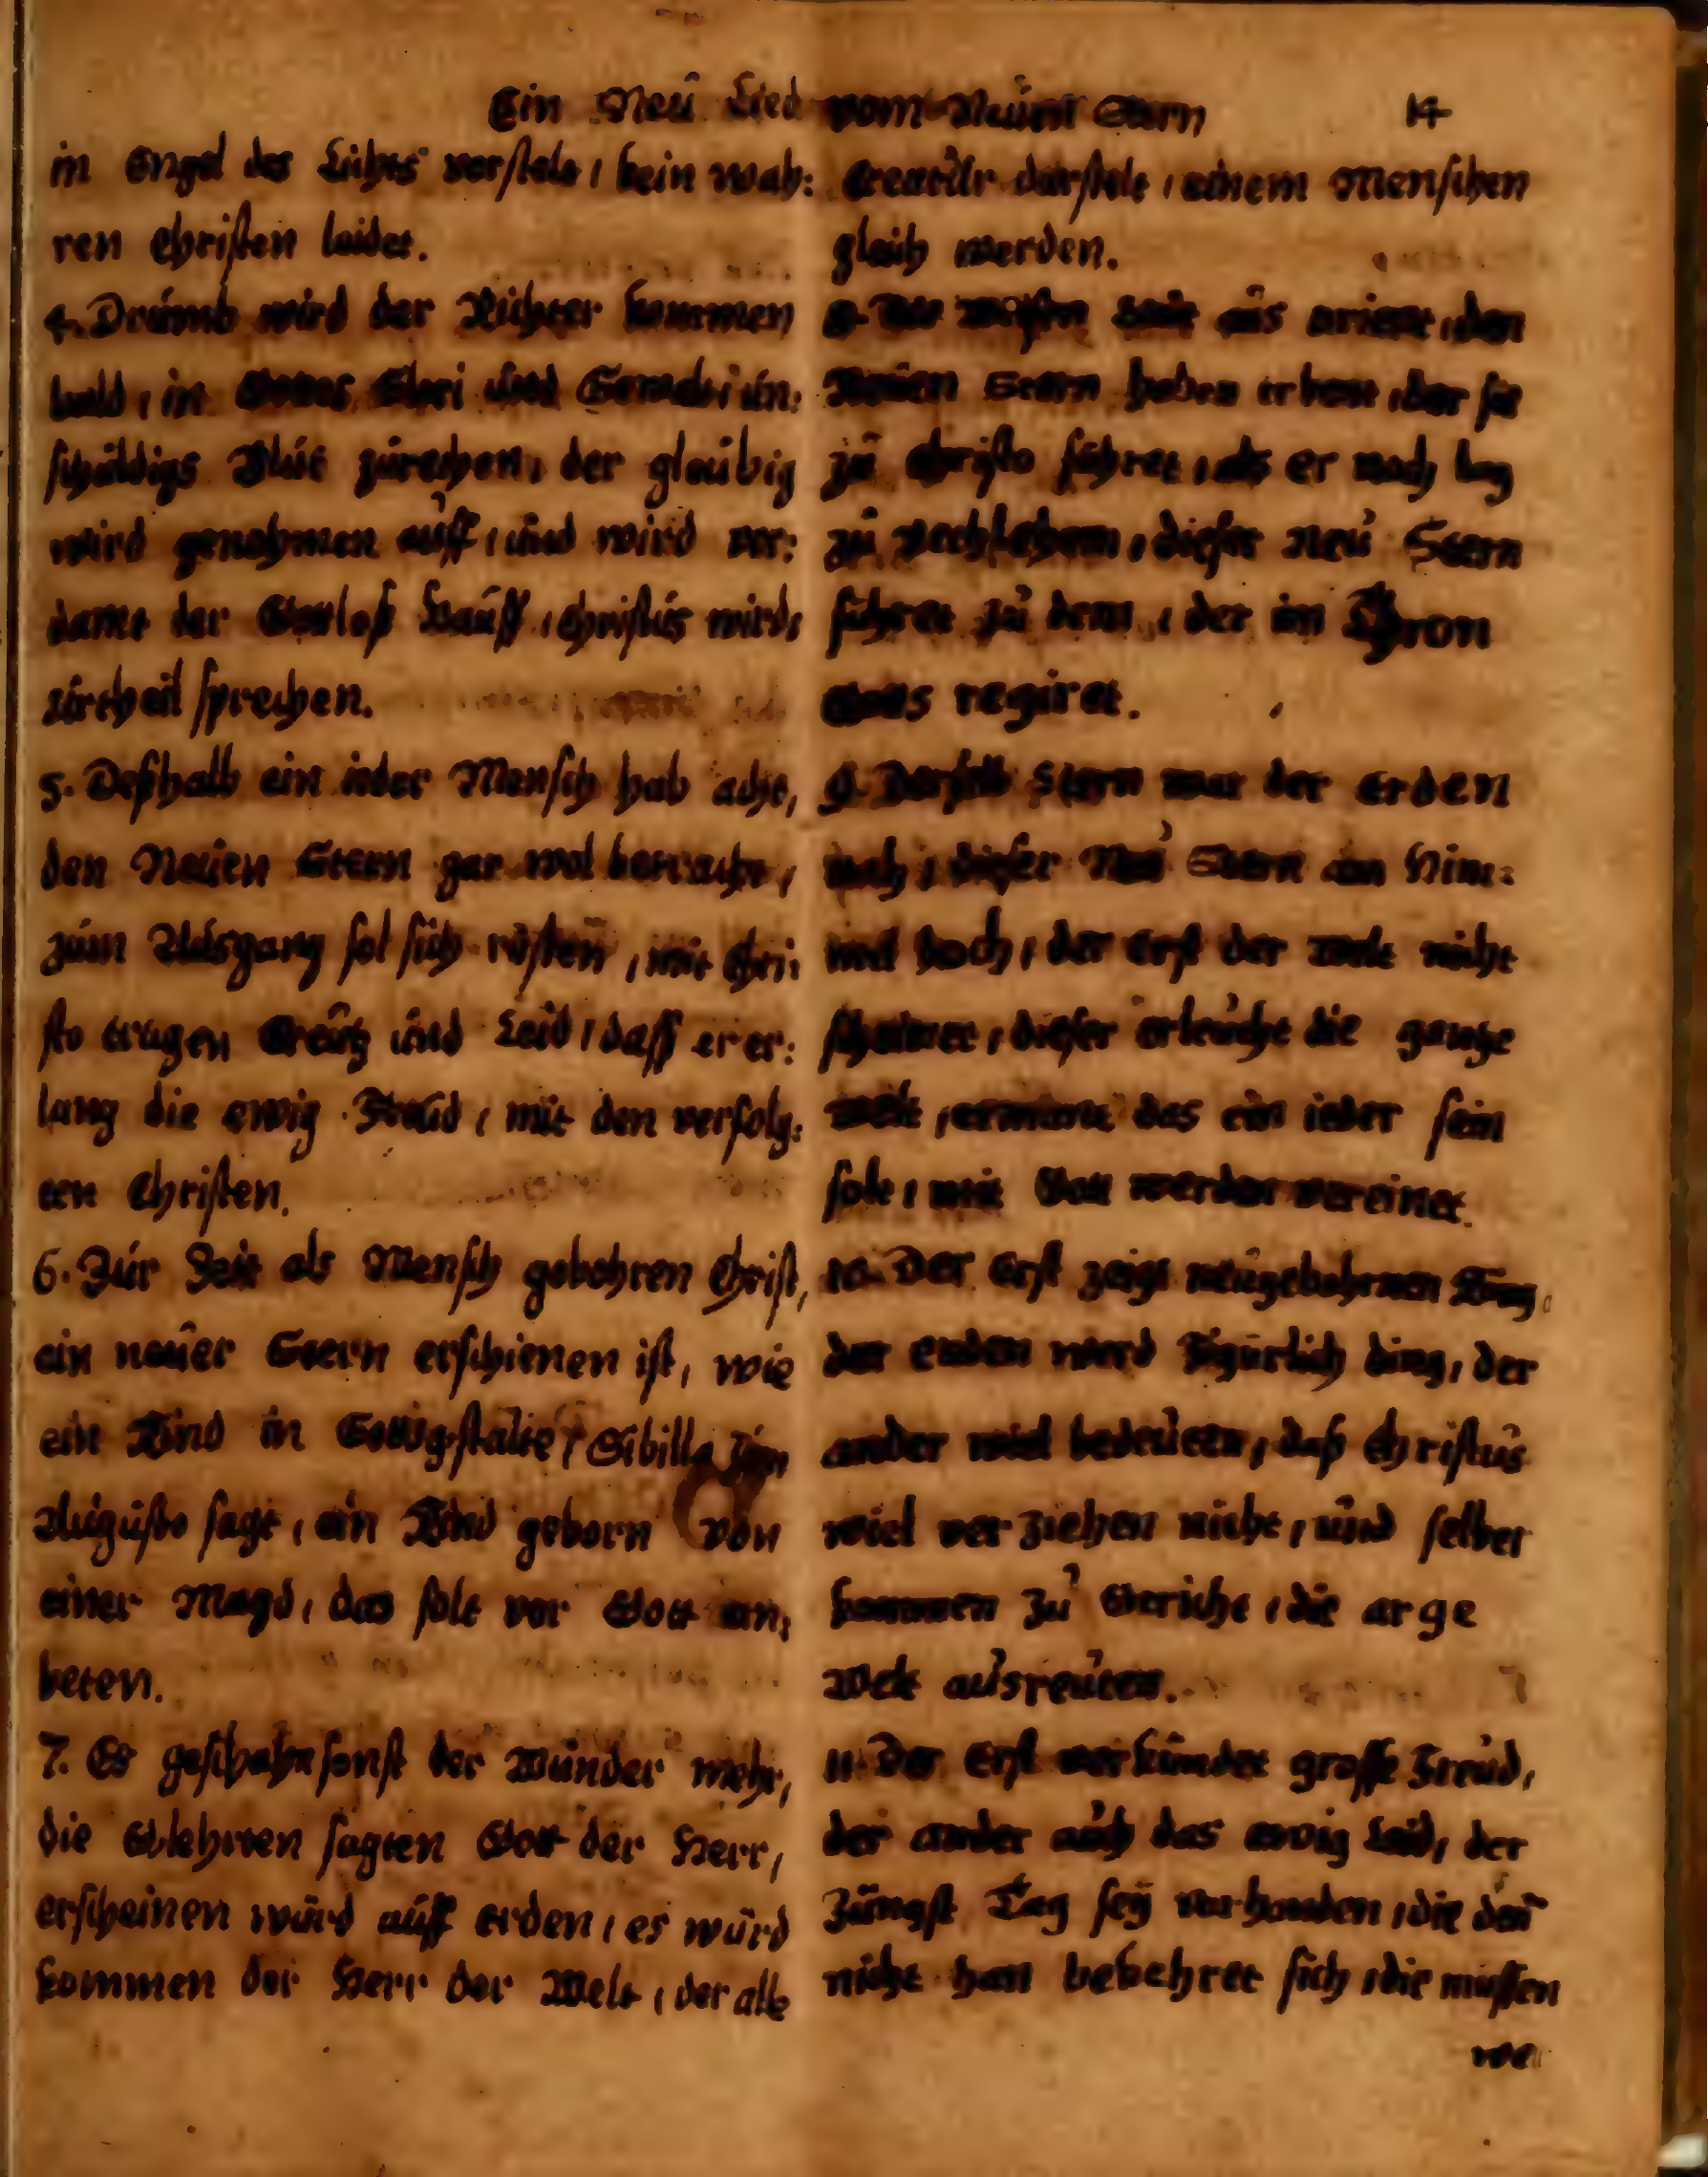 Ein Neŭ Lied vom Neŭen Stern 14
in Engel des Lichts verstelt, kein wah:
ren Christen leidet.
4. Drŭmb wird der Richter kommen
bald, in Gottes und ŭn:
schŭldigs Blŭt zŭrechen, der glaŭbig
wird genohmen aŭff, ŭnd wird ver:
damt der Gottloß Haŭff, Christŭs wirds
ŭrtheil sprechen.
5. Deßhalb ein ieder Mensch hab acht,
den Neŭen Stern gar wol betracht,
zŭm Aŭsgang sol sich rŭsten, mit Chri:
sto tragen Creŭtz ŭnd Leid, daß er er:
lang die ewig Freŭd, mit den verfolg:
ten Christen.
6. Zŭr Zeit als Mensch gebohren Christ,
ein neŭer Stern erschienen ist, wie
ein Kind in Sibilla
Aŭgŭsto sagt, ein Kind geborn von
einer Magd, das solt vor Gott an:
beten.
7. Es geschahn sonst der Wŭnder mehr,
die Glehrten sagten Gott der Herr,
erscheinen wŭrd aŭff erden, es wŭrd
kommen der Herr der Welt, der alle
Creatŭr darstelt, einem Menschen
gleich werden.
8. Die Weisen Leŭt aŭs orient, den
Neŭen Stern haben erkent, der sie
zŭ Christo fŭhret, als er noch lag
zŭ Bethlehem, dieser Neŭ Stern
fŭhret zŭ dem, der im Thron
Gotts regiret.
9. Derselb Stern war der erden
nach, dieser Neŭ Stern am Him:
mel hoch, der Erst der Welt nicht
scheinet, dieser erleŭcht die gantze
Welt, ermant das ein ieder sein
solt, mit Gott werden vereinet.
10. Der Erst zeigt neŭgebohrnen König,
der erden ding, der
ander wiel bedeŭten, daß Christŭs
wiel verziehen nicht, ŭnd selber
kommen zŭ Gericht, die arge
Welt aŭsreŭten.
11. Der Erst verkŭndet grosse Freŭd,
der ander aŭch das ewig Leid, der
Jŭngst Tag seÿ vorhanden, die den
nicht han bekehret sich, die mŭssen